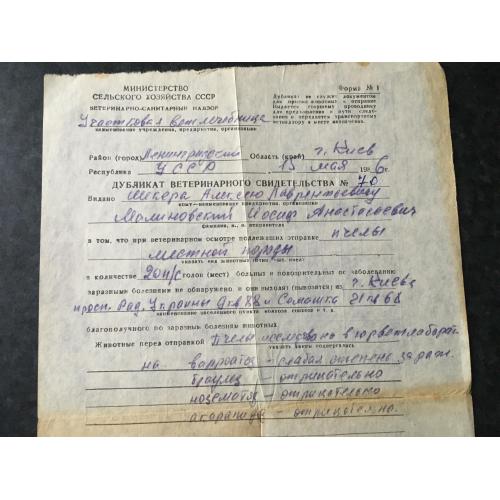 МИНИСТЕРСТВО
СЕЛЬСКОГО ХОЗЯЙСТВА СССР
ВЕТЕРИНАРНО-САНИТАРНЫЙ НАДЗОР
Форма № 1
Дубликат не служит документом
для приема животных к отправке.
Выдается старшему проводнику
для предъявления в пути следо-
вания и передачи транспортному
ветнадзору в месте назначения.
Участковая ветлечебница
наименование учреждения, предприятия, организации
Район (город) Ленинградский Область (край) г. Киев
Республика УССР 15 мая 1986 г.
ДУБЛИКАТ ВЕТЕРИНАРНОГО СВИДЕТЕЛЬСТВА № 70
Выдано Шкера Алексею Лаврентьевичу
кому—наименование предприятия, организации
Мрлиновский Иосиф Анастасьевич
фамилия, и., о. отправителя
в том, что при ветеринарном осмотре подлежащих отправке пчелы
местной породы
указать вид животных (птиц, пол, вес)
в количестве 20 п/с голов (мест) больных и подозрительных по заболеванию
заразными болезнями не обнаружено и они выходят (вывозятся) из г. Киева
просп. Рад. Украины
наименование населенного пункта колхоза совхоза и т. д.
благополучного по заразным болезням животных.
Животные перед отправкой Пчелы исследованы в горветлаборат.
указать какой подвергались
на варроатоз – слабая степень зараж.
браулез – отрицательно
нозематоз – отрицательно
акарапидоз – отрицательно.